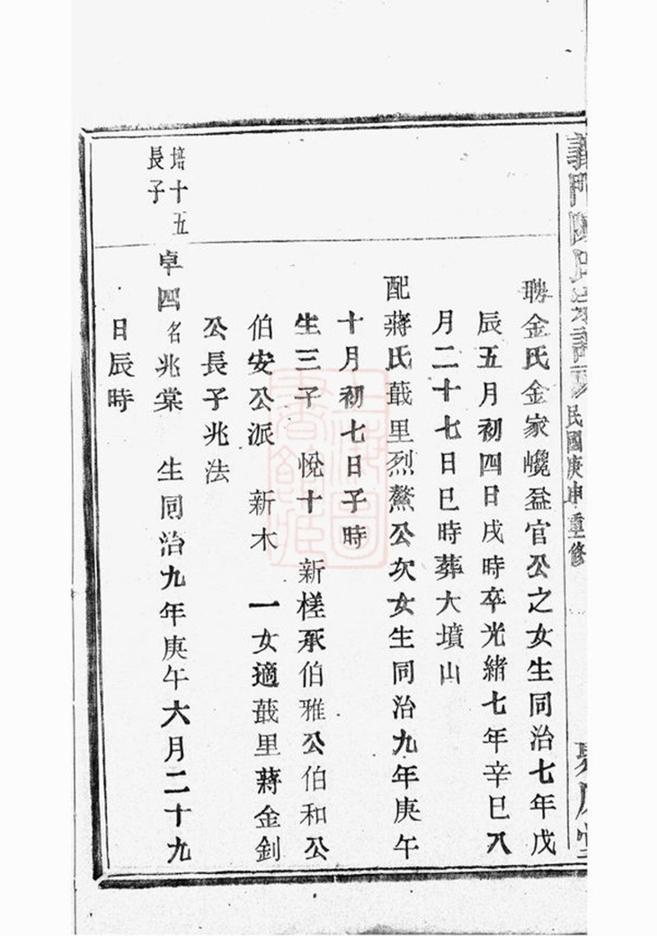 義門陳氏宗譜 民國庚申重修
聘金氏金家巉益官公之女生同治七年戊
辰五月初四日戌時卒光緒七年辛巳八
月二十七日巳時葬大墳山
配蔣氏蕺里烈鰲公次女生同治九年庚午
十月初七日子時
生三子 悅十 新槎承伯雅公伯和公
伯安公派 新木 一女適蕺里蔣金釗
公長子兆法
培十五
長子
卓四名兆棠 生同治九年庚午六月二十九
日辰時
上海圖
書館藏